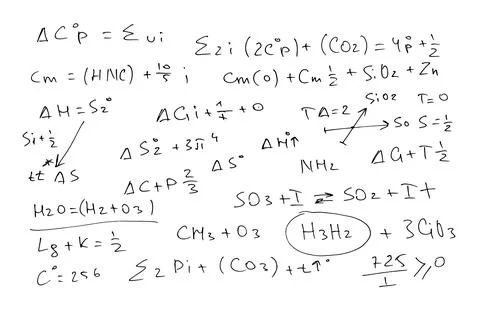 ΔC°p = Σνi
Σ2i (2C°p) + (CO2) = 4p° + 1/2
Cm = (HNC) + 10/5 i
Cm(0) + Cm 1/2 + SiO2 + Zn
ΔH = S2°
ΔGi + 1/7 + 0
TA = 2
SiO2
T = 0
So S = 1/2
Si + 1/2
ΔS2° + 3π4
ΔS°
ΔH°↑
NH2
ΔG + T 1/2
tt ΔS
ΔC + P 2/3
SO3 + I ⇌ SO2 + I+
H2O = (H2 + O3)
Lg + K = 1/2
CH3 + O3
H3H2
+ 3CiO3
C° = 256
Σ2 Di + (CO3) + t°↑
725/1 ≥ 0